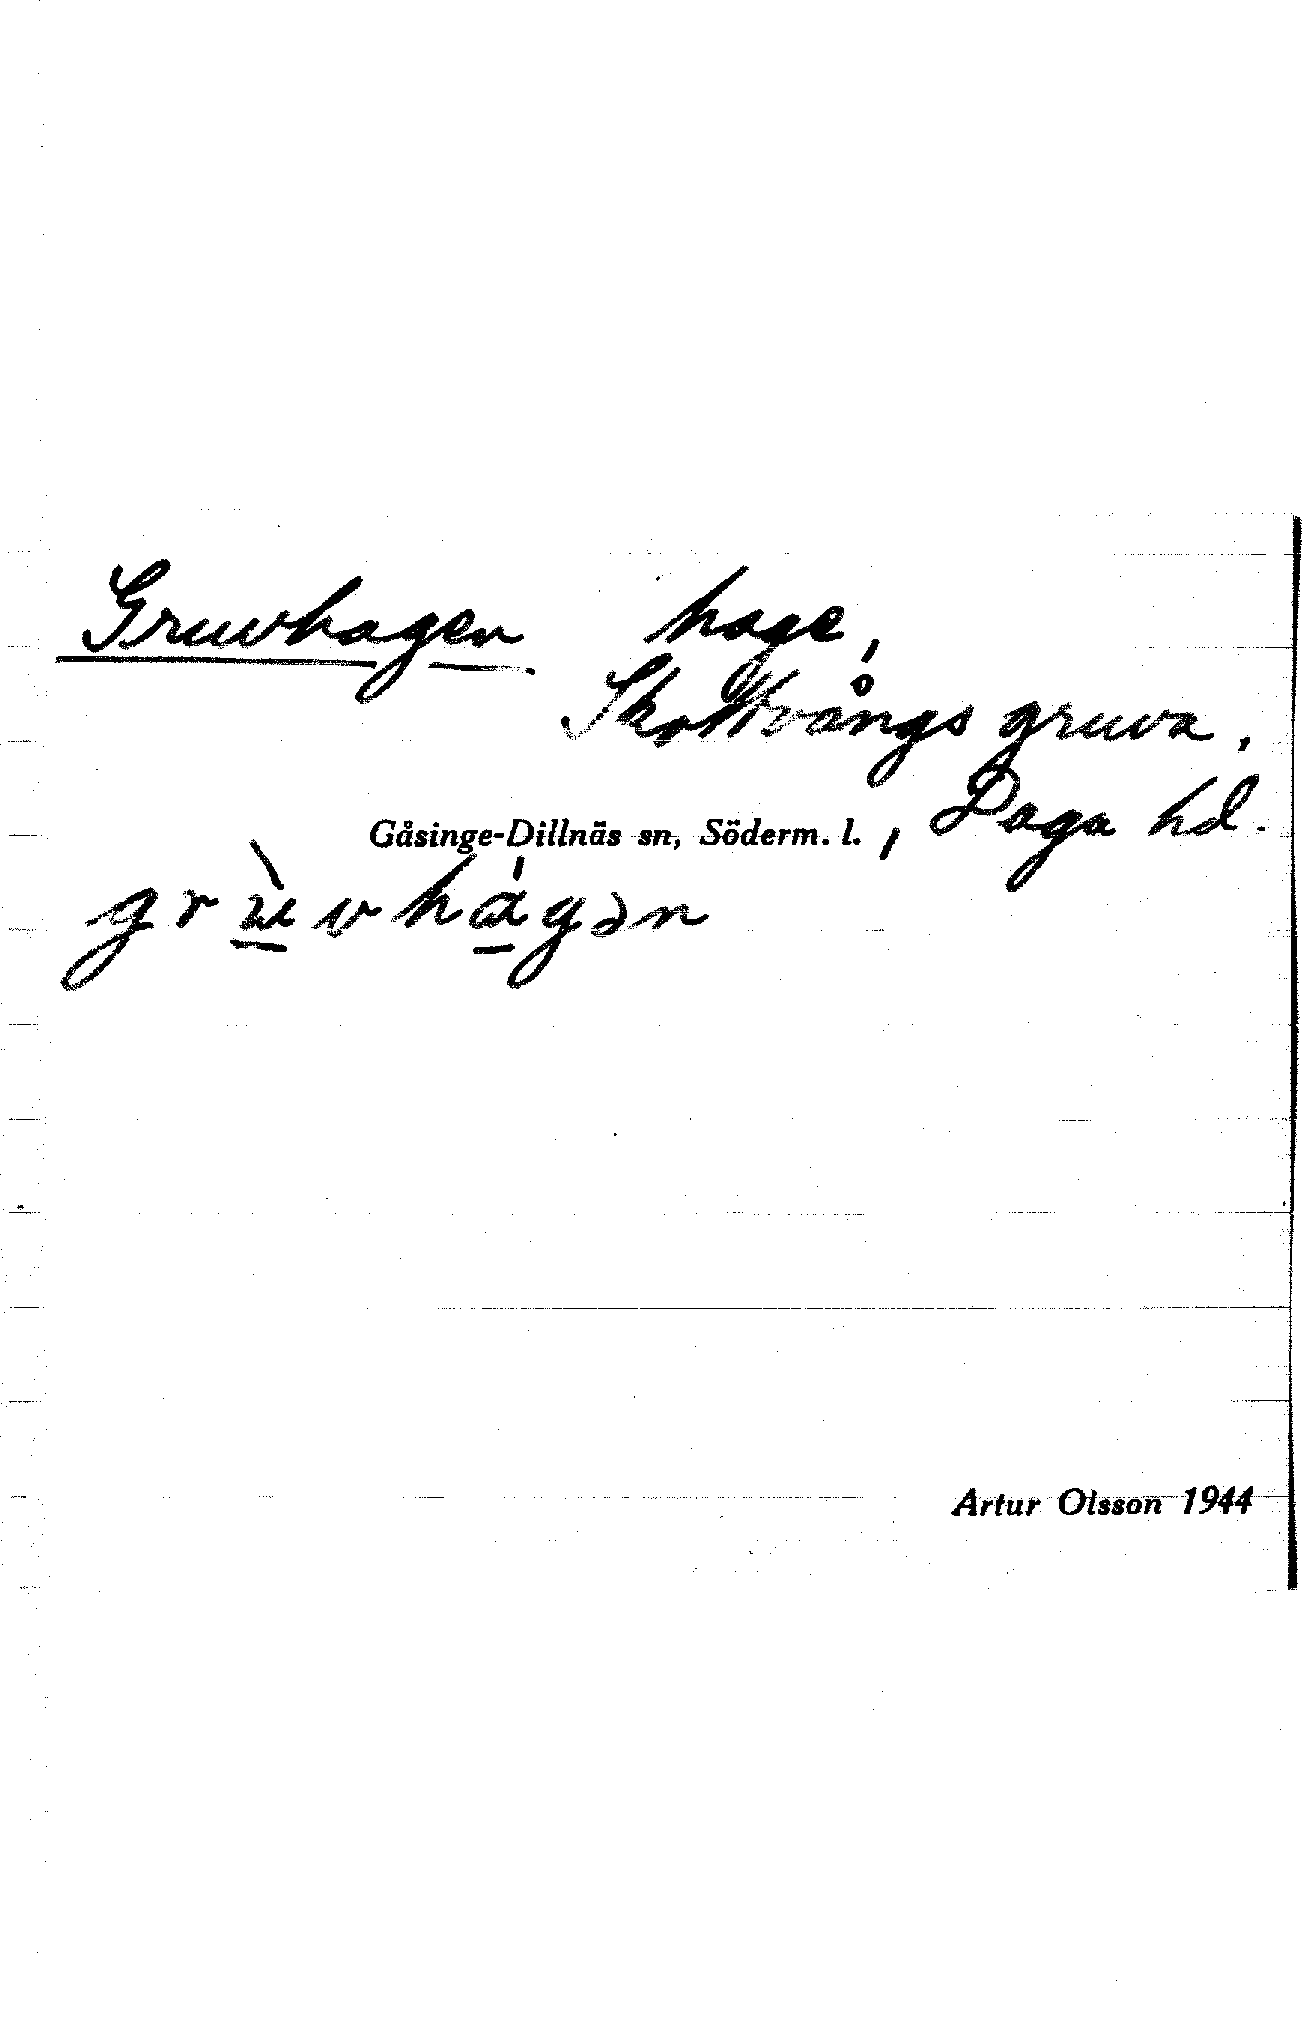 Gruvhagen hage,
Skottvångs gruva,
Gåsinge-Dillnäs sn, Söderm. l., Daga hd.
grùvhágən
Artur Olsson 1944